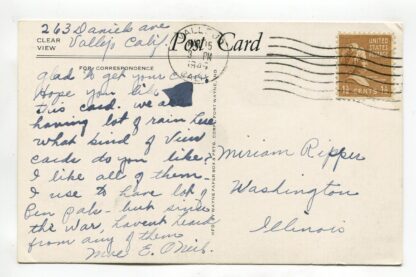 263 Daniels ave
Vallejo Calif.
CLEAR
VIEW
Post Card
VALLEJO
PM
CALIF.
UNITED STATES
POSTAGE
1½ CENTS 1½
FOR CORRESPONDENCE
glad to get your card.
Hope you like
this card. we are
having lot of rain here
what kind of View
cards do you like?
I like all of them—
I use to have lot of
Pen pals— but since
the War, havent heard
from any of them
Mrs E.
Miriam Ripper
Washington
Illinois